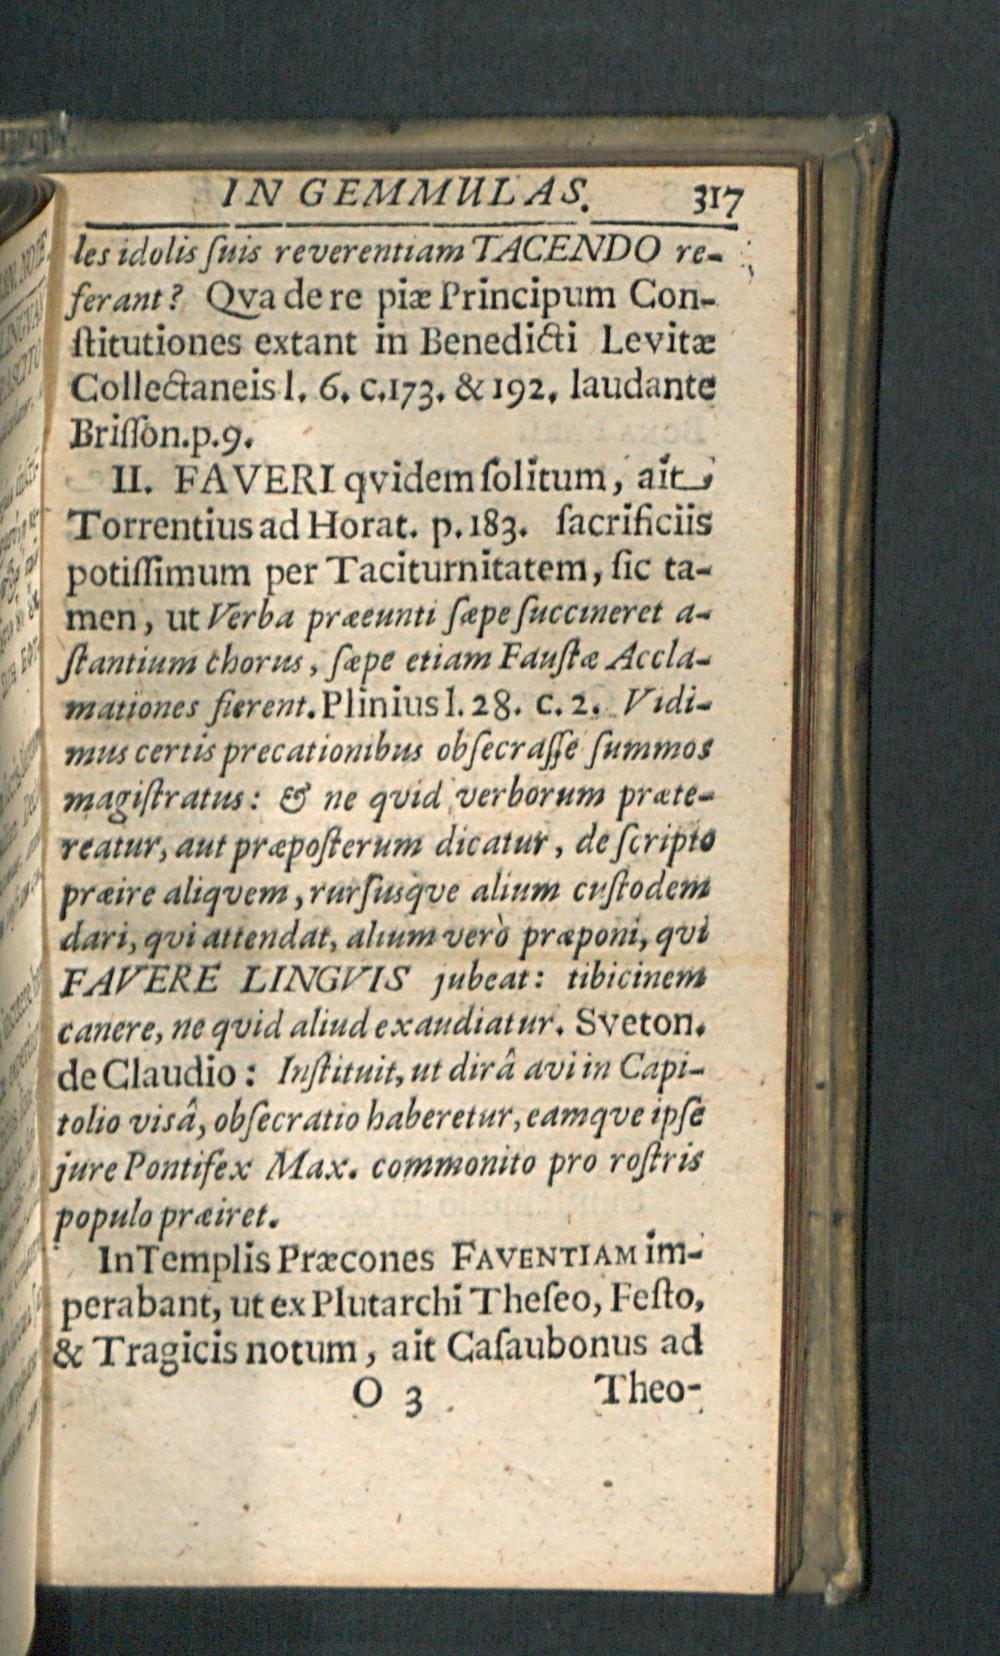 IN GEMMULAS. 317
les idolis ſuis reverentiam TACENDO re-
ferant? Qva de re piæ Principum Con-
ſtitutiones extant in Benedicti Levitæ
Collectaneis l. 6. c.173. & 192. laudante
Briſſon.p.9.
II. FAVERI qvidem ſolitum, ait
Torrentius ad Horat. p.183. ſacrificiis
potiſſimum per Taciturnitatem, ſic ta-
men, ut Verba præeunti ſæpe ſuccineret a-
ſtantium chorus, ſæpe etiam Fauſtæ Accla-
mationes fierent. Plinius l. 28. c. 2. Vidi-
mus certis precationibus obſecraſſe ſummos
magiſtratus: & ne qvid verborum præte-
reatur, aut præpoſterum dicatur, de ſcripto
præire aliquem, rurſusque alium cuſtodem
dari, qvi attendat, alium verò præponi, qvi
FAVERE LINGVIS jubeat: tibicinem
canere, ne quid aliud exaudiatur. Sveton.
de Claudio: Inſtituit, ut dirâ avi in Capi-
tolio visâ, obſecratio haberetur, eamque ipſe
jure Pontifex Max. commonito pro roſtris
populo præiret.
In Templis Præcones FAVENTIAM im-
perabant, ut ex Plutarchi Theſeo, Feſto,
& Tragicis notum, ait Caſaubonus ad
O 3 Theo-